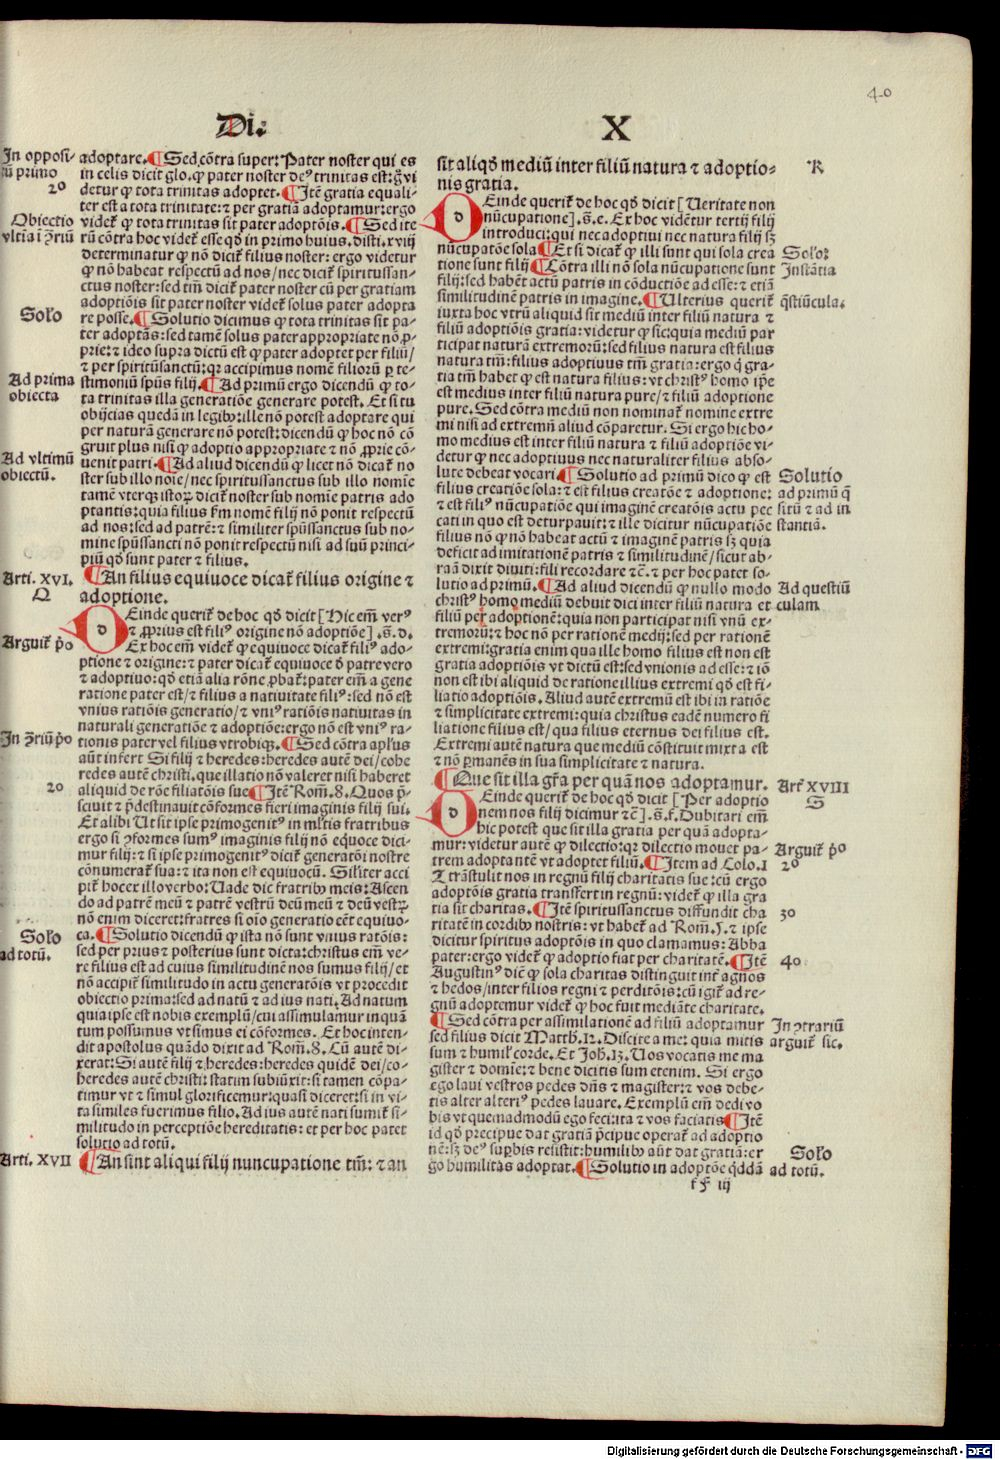 40
Di. X
In opposi-
tũ primo
2º
Obiectio
vltia i ꝯ̃riũ
Solo
Ad prima
obiecta
Ad vltimũ
obiectũ.
Arti. XVI.
Q
Arguit̃ p̃o
In ꝯ̃riũ p̃o
2º
Solo
ad totũ.
Arti. XVII
adoptare. ¶ Sed cõtra super: Pater noster qui es
in celis dicit glo. ꝙ pater noster de⁹ trinitas est: g̃ vi
detur ꝙ tota trinitas adoptet. ¶ Itẽ gratia equali-
ter est a tota trinitate: ⁊ per gratiã adoptamur: ergo
videt̃ ꝙ tota trinitas sit pater adoptõis. ¶ Sed ite
rũ cõtra hoc videt̃ esse qd̃ in primo huius. disti. xviij
determinatur ꝙ nõ dicit̃ filius noster: ergo videtur
ꝙ nõ habeat respectũ ad nos/ nec dicit̃ spiritussan-
ctus noster: sed tm̃ dicit̃ pater noster cũ per gratiam
adoptiõis sit pater noster videt̃ solus pater adopta
re posse. ¶ Solutio dicimus ꝙ tota trinitas sit pa-
ter adoptãs: sed tamẽ solus pater appropriate nõ ꝓ-
prie: ⁊ ideo supra dictũ est ꝙ pater adoptet per filiũ/
⁊ per spiritũsanctũ: qr accipimus nomẽ filiorũ ꝑ te-
stimoniũ spũs filij. ¶ Ad primũ ergo dicendũ ꝙ to-
ta trinitas illa generatiõe generare potest. Et si tu
obijcias quedã in legibꝫ: ille nõ potest adoptare qui
per naturã generare nõ potest: dicendũ ꝙ hoc nõ cõ
gruit plus nisi ꝙ adoptio appropriate ⁊ nõ ꝓprie cõ-
uenit patri. ¶ Ad aliud dicendũ ꝙ licet nõ dicat̃ no
ster sub illo noĩe/ nec spiritussanctus sub illo nomĩe
tamẽ vterqꝫ istoꝝ dicit̃ noster sub nomĩe patris ado
ptantis: quia filius ẽm nomẽ filij nõ ponit respectũ
ad nos: sed ad patrẽ: ⁊ similiter spũssanctus sub no-
mine spũssancti nõ ponit respectũ nisi ad suũ princi-
piũ qd̃ sunt pater ⁊ filius.
¶ An filius equiuoce dicat̃ filius origine ⁊
adoptione.
Deinde querit̃ de hoc qd̃ dicit [Hic em̃ ver⁹
⁊ ꝓprius est fili⁹ origine nõ adoptiõe] .s̃. d.
Ex hoc em̃ videt̃ ꝙ equiuoce dicat̃ fili⁹ ado-
ptione ⁊ origine: ⁊ pater dicat̃ equiuoce d̃ patre vero
⁊ adoptiuo: qd̃ etiã alia rõne ꝓbat̃: pater em̃ a gene
ratione pater est/ ⁊ filius a natiuitate fili⁹: sed nõ est
vnius ratiõis generatio/ ⁊ vni⁹ ratiõis natiuitas in
naturali generatiõe ⁊ adoptiõe: ergo nõ est vni⁹ ra-
tionis pater vel filius vtrobiqꝫ. ¶ Sed cõtra apl̃us
aũt infert Si filij ⁊ heredes: heredes autẽ dei/ cohe
redes autẽ christi. que illatio nõ valeret nisi haberet
aliquid de rõe filiatõis sue ¶ Itẽ Rom̃. 8. Quos p̃-
sciuit ⁊ p̃destinauit cõformes fieri imaginis filij sui.
Et alibi Ut sit ipse primogenit⁹ in ml̃tis fratribus
ergo si ꝯformes sum⁹ imaginis filij nõ eq̃uoce dici-
mur filij: ⁊ si ipse primogenit⁹ dicit̃ generatõi nostre
cõnumerat̃ sua: ⁊ ita non est equiuocũ. Sil̃iter acci
pit̃ hoc ex illo verbo: Uade dic fratribꝫ meis: Ascen
do ad patrẽ meũ ⁊ patrẽ vestrũ deũ meũ ⁊ deũ vestꝝ
nõ enim diceret: fratres si oĩo generatio eẽt equiuo-
ca. ¶ Solutio dicendũ ꝙ ista nõ sunt vnius ratõis:
sed per prius ⁊ posterius sunt dicta: christus em̃ ve-
re filius est ad cuius similitudinẽ nos sumus filij/ et
nõ accipit̃ similitudo in actu generatõis vt procedit
obiectio prima: sed ad natũ ⁊ ad ius nati. Ad natum
quia ipse est nobis exemplũ/ cui assimulamur inquã
tum possumus vt simus ei cõformes. Et hoc inten-
dit apostolus quãdo dixit ad Rom̃. 8. Cũ autẽ di-
xerat: Si autẽ filij ⁊ heredes: heredes quidẽ dei/ co-
heredes autẽ christi: statim subiũxit: si tamen cõpa-
timur vt ⁊ simul glorificemur: quasi diceret: si in vi-
ta similes fuerimus filio. Ad ius autẽ nati sumit̃ si-
militudo in perceptiõe hereditatis: et per hoc patet
solutio ad totũ.
¶ An sint aliqui filij nuncupatione tm̃: ⁊ an
sit aliqd̃ mediũ inter filiũ natura ⁊ adoptio-
nis gratia.
Deinde querit̃ de hoc qd̃ dicit [Ueritate non
nũcupatione] .s̃. e. Ex hoc videtur tertij filij
introduci: qui nec adoptiui nec natura filij sꝫ
nũcupatõe sola ¶ Et si dicat̃ ꝙ illi sunt qui sola crea
tione sunt filij ¶ Cõtra illi nõ sola nũcupatione sunt
filij: sed habẽt actũ patris in cõductiõe ad esse: ⁊ etiã
similitudinẽ patris in imagine. ¶ Ulterius querit̃
iuxta hoc vtrũ aliquid sit mediũ inter filiũ natura ⁊
filiũ adoptiõis gratia: videtur ꝙ sic: quia mediũ par
ticipat naturã extremorũ: sed filius natura est filius
natura tm̃: filius adoptiuus tm̃ gratia: ergo q̃ gra-
tia tm̃ habet ꝙ est natura filius: vt christ⁹ homo ip̃e
est medius inter filiũ natura pure/ ⁊ filiũ adoptione
pure. Sed cõtra mediũ non nominat̃ nomine extre
mi nisi ad extremũ aliud cõparetur. Si ergo hic ho-
mo medius est inter filiũ natura ⁊ filiũ adoptiõe vi-
detur ꝙ nec adoptiuus nec naturaliter filius abso-
lute debeat vocari. ¶ Solutio ad primũ dico ꝙ est
filius creatiõe sola: ⁊ est filius creatõe ⁊ adoptione:
⁊ est fili⁹ nũcupatiõe qui imaginẽ creatõis actu pec
cati in quo est deturpauit: ⁊ ille dicitur nũcupatiõe
filius nõ ꝙ nõ habeat actũ ⁊ imaginẽ patris sꝫ quia
deficit ad imitationẽ patris ⁊ similitudinẽ/ sicut ab-
raã dixit diuiti: fili recordare ⁊c̃. ⁊ per hoc patet so-
lutio ad primũ. ¶ Ad aliud dicendũ ꝙ nullo modo
christ⁹ homo mediũ debuit dici inter filiũ natura et
filiũ per adoptionẽ: quia non participat nisi vnũ ex-
tremorũ: ⁊ hoc nõ per rationẽ medij: sed per rationẽ
extremi: gratia enim qua ille homo filius est non est
gratia adoptiõis vt dictũ est: sed vnionis ad esse: ⁊ iõ
non est ibi aliquid de ratione illius extremi qd̃ est fi-
liatio adoptiõis. Aliud autẽ extremũ est ibi in ratiõe
⁊ simplicitate extremi: quia christus eadẽ numero fi
liatione filius est/ qua filius eternus dei filius est.
Extremi autẽ natura que mediũ cõstituit mixta est
⁊ nõ ꝑmanẽs in sua simplicitate ⁊ natura.
¶ Que sit illa gr̃a per quã nos adoptamur.
Deinde querit̃ de hoc qd̃ dicit [Per adoptio
nem nos filij dicimur ⁊c̃] .s̃. f. Dubitari em̃
hic potest que sit illa gratia per quã adopta-
mur: videtur autẽ ꝙ dilectio: qr dilectio mouet pa-
trem adoptantẽ vt adoptet filiũ. ¶ Item ad Colo. 1
Trãstulit nos in regnũ filij charitatis sue: cũ ergo
adoptõis gratia transfert in regnũ: videt̃ ꝙ illa gra
tia sit charitas. ¶ Itẽ spiritussanctus diffundit cha
ritatẽ in cordibꝫ nostris: vt habet̃ ad Rom̃. 5. ⁊ ipse
dicitur spiritus adoptõis in quo clamamus: Abba
pater: ergo videt̃ ꝙ adoptio fiat per charitatẽ. ¶ Itẽ
Augustin⁹ diẽ ꝙ sola charitas distinguit int̃ agnos
⁊ hedos/ inter filios regni ⁊ perditõis: cũ igit̃ ad re-
gnũ adoptemur videt̃ ꝙ hoc fuit mediãte charitate.
¶ Sed cõtra per assimilationẽ ad filiũ adoptamur
sed filius dicit Matth. 12. Discite a me: quia mitis
sum ⁊ humil̃ corde. Et Joh. 13. Uos vocatis me ma
gister ⁊ domĩe: ⁊ bene dicitis sum etenim. Si ergo
ego laui vestros pedes dñs ⁊ magister: ⁊ vos debe-
tis alter alteri⁹ pedes lauare. Exemplũ em̃ dedi vo
bis vt quemadmodũ ego feci: ita ⁊ vos faciatis ¶ Itẽ
id qd̃ precipue dat gratiã p̃cipue operat̃ ad adoptio
nẽ: sꝫ de⁹ suꝑbis resistit: humilibꝫ aũt dat gratiã: er
go humilitas adoptat. ¶ Solutio in adoptõe q̃ddã
R
Solo:
Instãtia
q̃stiũcula.
Solutio
ad primũ q̃
sitũ ⁊ ad in
stantiã.
Ad questiũ
culam.
Art̃ XVIII
S
Arguit̃ p̃o
2º
3º
4º
In ꝯtrariũ
arguit̃ sic.
Solo
ad totũ.
ff iij
Digitalisierung gefördert durch die Deutsche Forschungsgemeinschaft - DFG